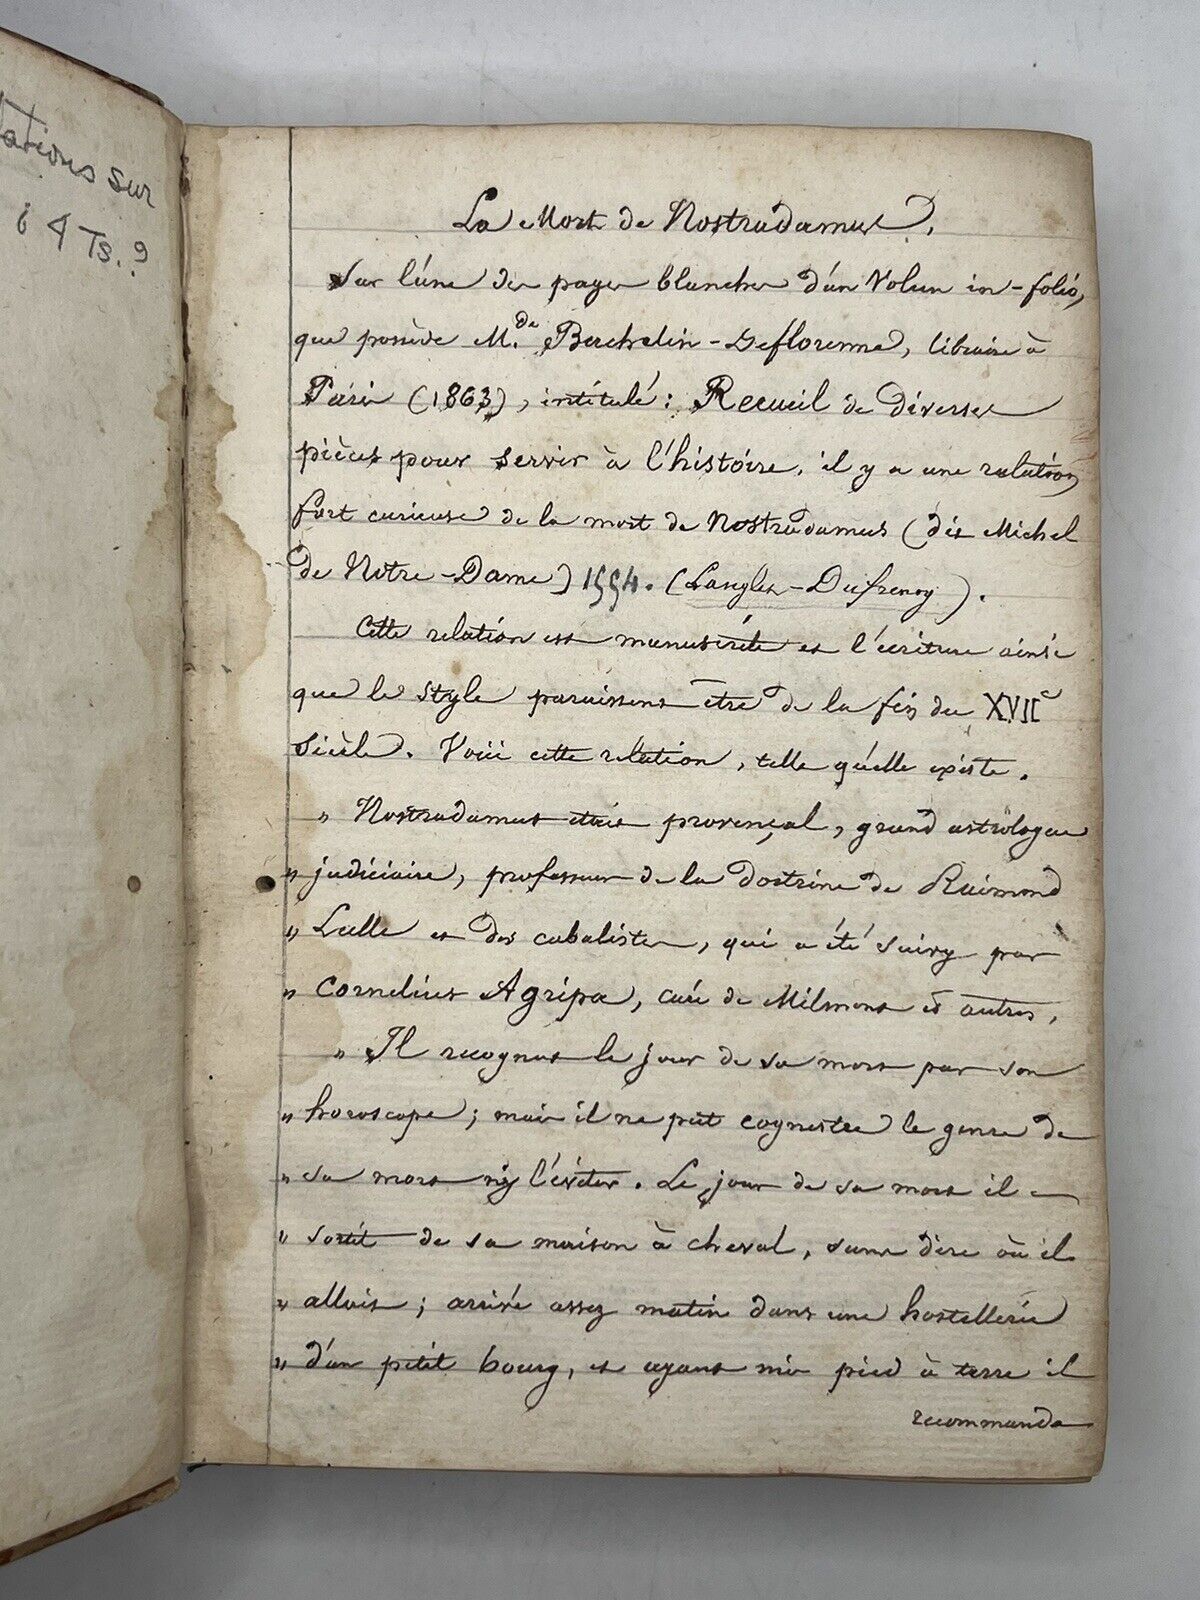 tations sur
i 4 Ts.?
La Mort de Nostradamus.
Sur l'une des pages blanches d'un Volum in-folio,
que possède M.de Bachelin-Deflorenne, libraire à
Paris (1863), intitulé: Recueil de diverses
pièces pour servir à l'histoire, il y a une relation
fort curieuse de la mort de Nostradamus (dit Michel
de Notre-Dame) 1554. (Langlet-Dufrenoy).
Cette relation est manuscrite et l'écriture ainsi
que le style paraissent être de la fin du XVIIe
Siècle. Voici cette relation, telle qu'elle existe.
" Nostradamus étais provençal, grand astrologue
" judiciaire, professeur de la doctrine de Raimond
" Lulle et des cabalistes, qui a été suivy par
" Cornelius Agripa, curé de Milmont et autres,
" Il recognut le jour de sa mort par son
" horoscope; mais il ne put cognestre le genre de
" sa mort ny l'éviter. Le jour de sa mort il
" sortit de sa maison à cheval, sans dire où il
" allait; arrivé assez matin dans une hostellerie
" d'un petit bourg, et ayant mis pied à terre il
recommanda